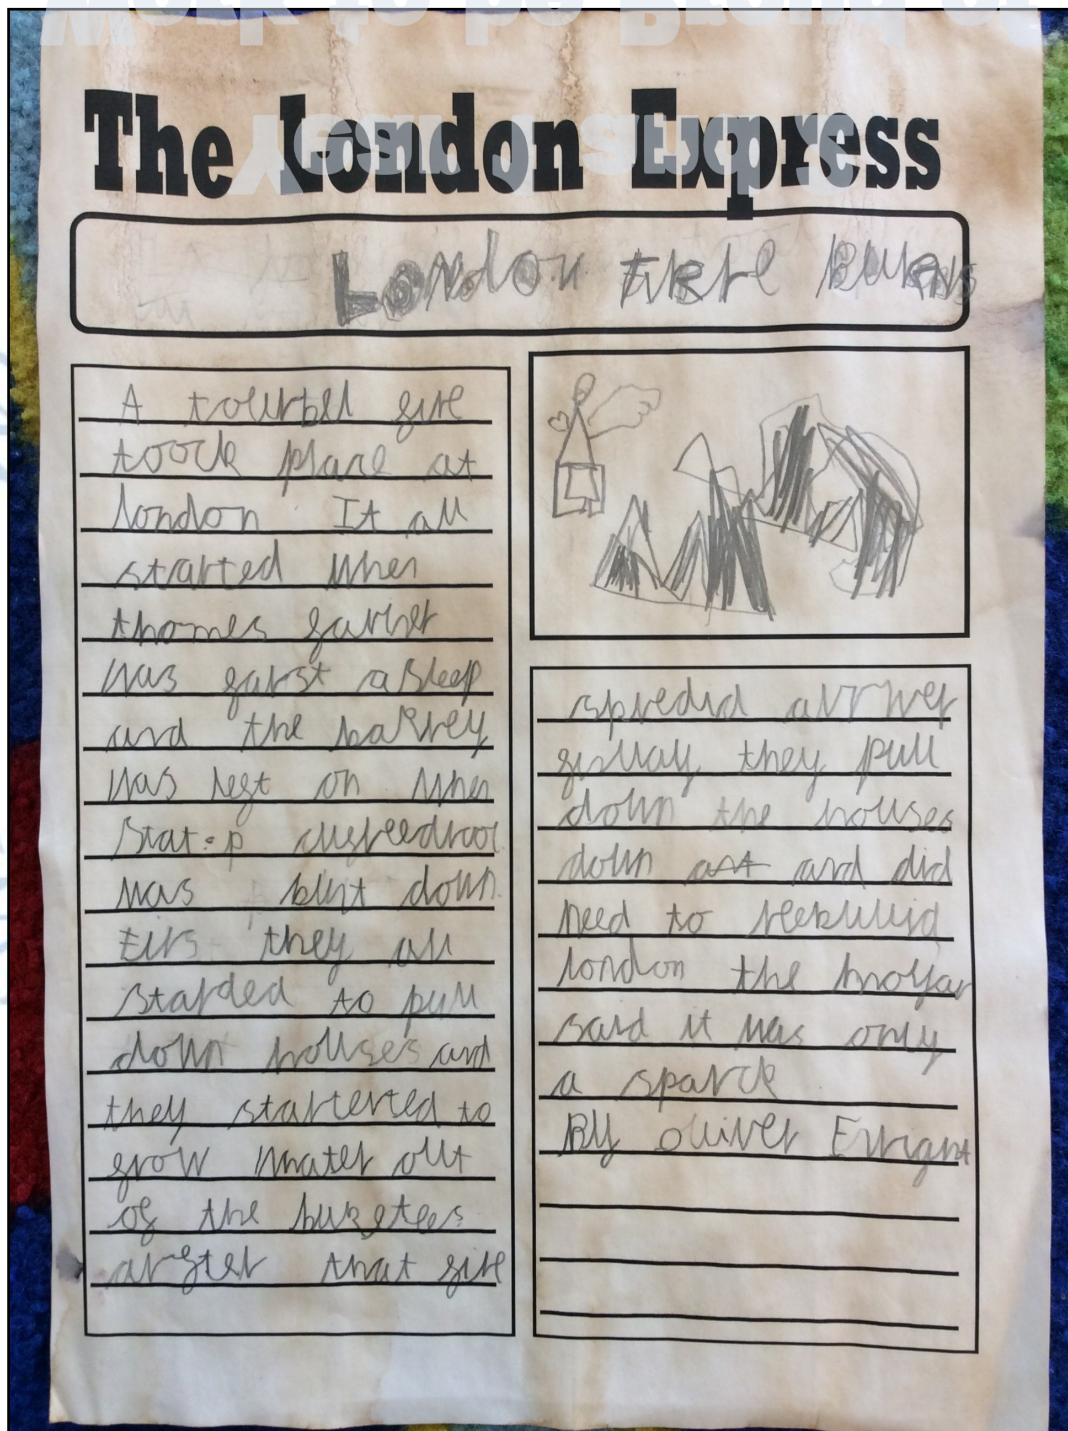 The London Express
London fire burns
A tourbel fire
toock place at
london It all
started when
thomes farner
was farst asleep
and the bakrey
was left on when
was burnt down
they all
starded to pull
down houses and
they starterted to
frow water out
of the buketees
arfter that fire
spredid
they pull
down the houses
down and did
need to reebulid
london the
said it was only
a sparck
By oliver Enright